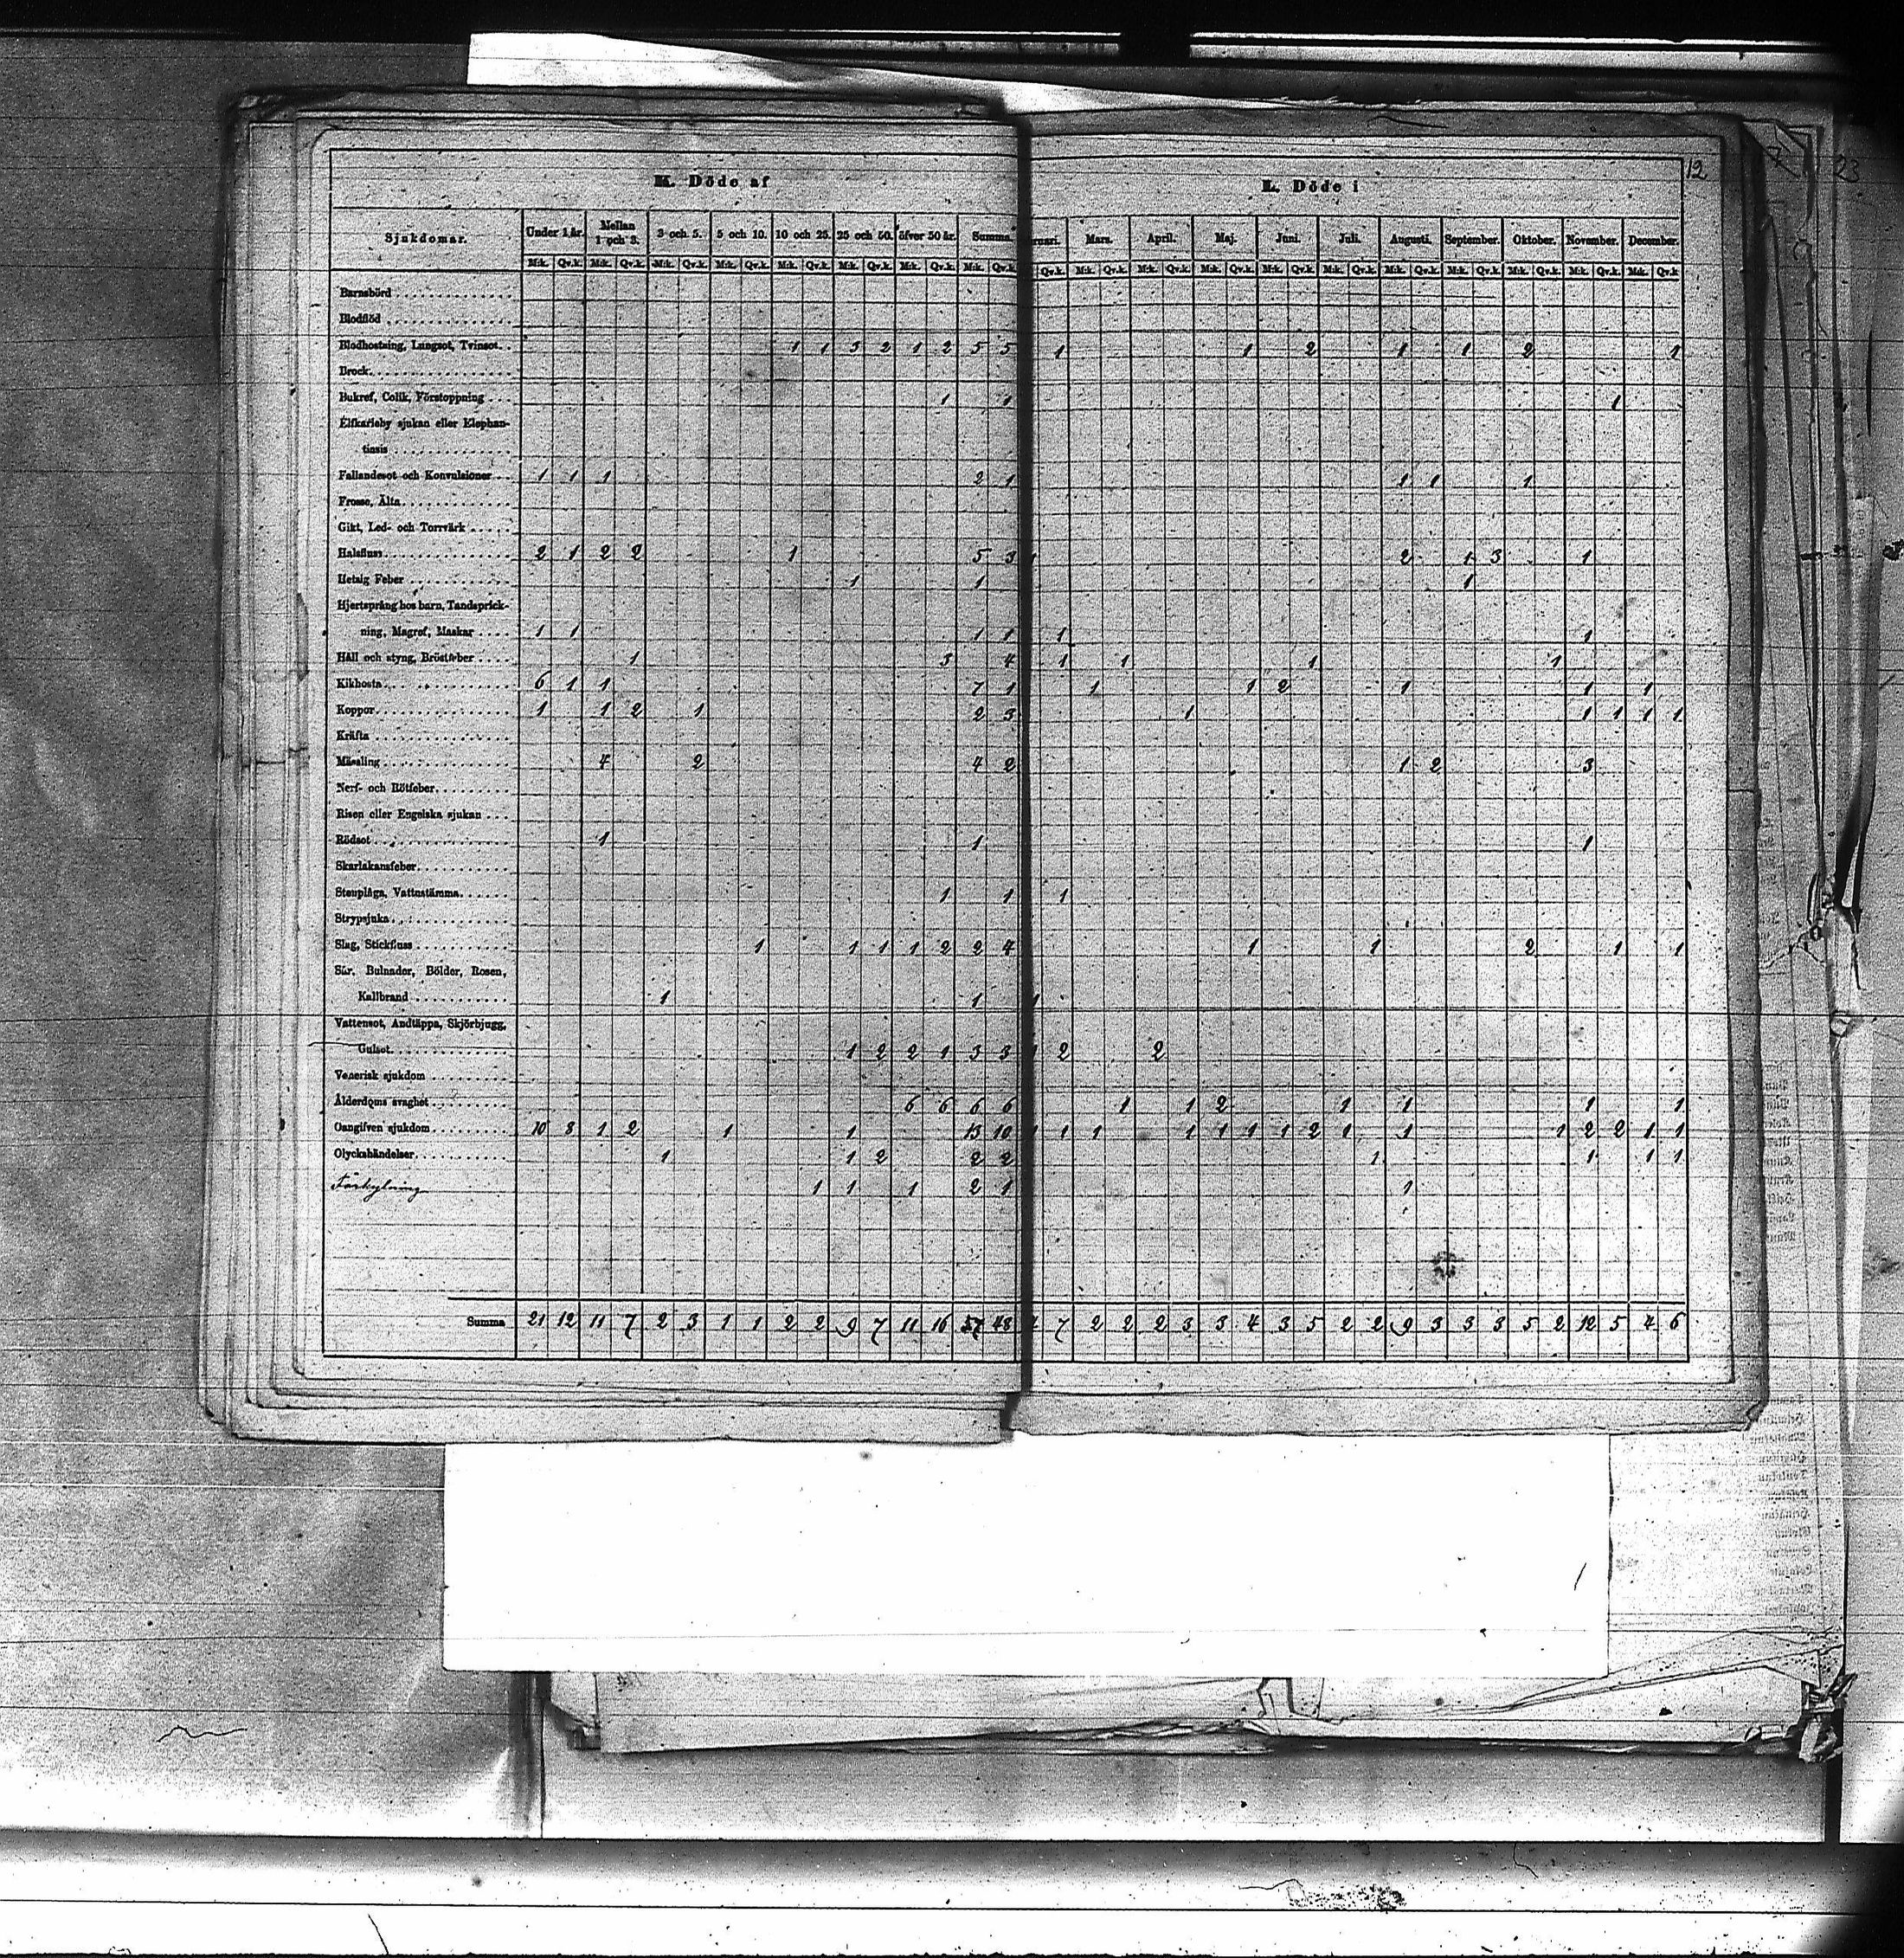 12
23
K. Döde af
L. Döde i
Sjukdomar. Under 1 år. Mellan 1 och 3. 3 och 5. 5 och 10. 10 och 25. 25 och 50. öfver 50 år. Summa. ruari. Mars. April. Maj. Juni. Juli. Augusti. September. Oktober. November. December.
M:k. Qv.k. M:k. Qv.k. M:k. Qv.k. M:k. Qv.k. M:k. Qv.k. M:k. Qv.k. M:k. Qv.k. M:k. Qv.k. Qv.k. M:k. Qv.k. M:k. Qv.k. M:k. Qv.k. M:k. Qv.k. M:k. Qv.k. M:k. Qv.k. M:k. Qv.k. M:k. Qv.k. M:k. Qv.k. M:k. Qv.k
Barnsbörd
Blodflöd
Blodhostning, Lungsot, Tvinsot. 1 1 3 2 1 2 5 5 1 1 2 1 1 2 1
Brock
Bukref, Colik, Förstoppning 1 1 1
Elfkarleby sjukan eller Elephan-
tiasis
Fallandesot och Konvulsioner 1 1 1 2 1 1 1 1
Frossa, Älta
Gikt, Led- och Torrvärk
Halsfluss 2 1 2 2 1 5 3 1 2 1 3 1
Hetsig Feber 1 1 1
Hjertsprång hos barn, Tandsprick-
ning, Magref, Maskar 1 1 1 1 1 1
Håll och styng, Bröstfeber 1 3 4 1 1 1 1
Kikhosta 6 1 1 7 1 1 1 2 1 1 1
Koppor 1 1 2 1 2 3 1 1 1 1 1
Kräfta
Mässling 4 2 4 2 1 2 3
Nerf- och Rötfeber
Risen eller Engelska sjukan
Rödsot 1 1 1
Skarlakansfeber
Stenplåga, Vattustämma 1 1 1
Strypsjuka
Slag, Stickfluss 1 1 1 1 2 2 4 1 1 2 1 1
Sår, Bulnader, Bölder, Rosen,
Kallbrand 1 1 1
Vattensot, Andtäppa, Skjörbjugg,
Gulsot 1 2 2 1 3 3 1 2 2
Venerisk sjukdom
Ålderdoms svaghet 6 6 6 6 1 1 2 1 1 1 1
Oangifven sjukdom 10 8 1 2 1 1 13 10 1 1 1 1 1 1 1 2 1 1 1 2 2 1 1
Olyckshändelser 1 1 2 2 2 1 1 1 1
Förkylning 1 1 1 2 1 1
Summa 21 12 11 7 2 3 1 1 2 2 9 7 11 16 57 48 7 2 2 2 3 3 4 3 5 2 2 9 3 3 3 5 2 12 5 4 6